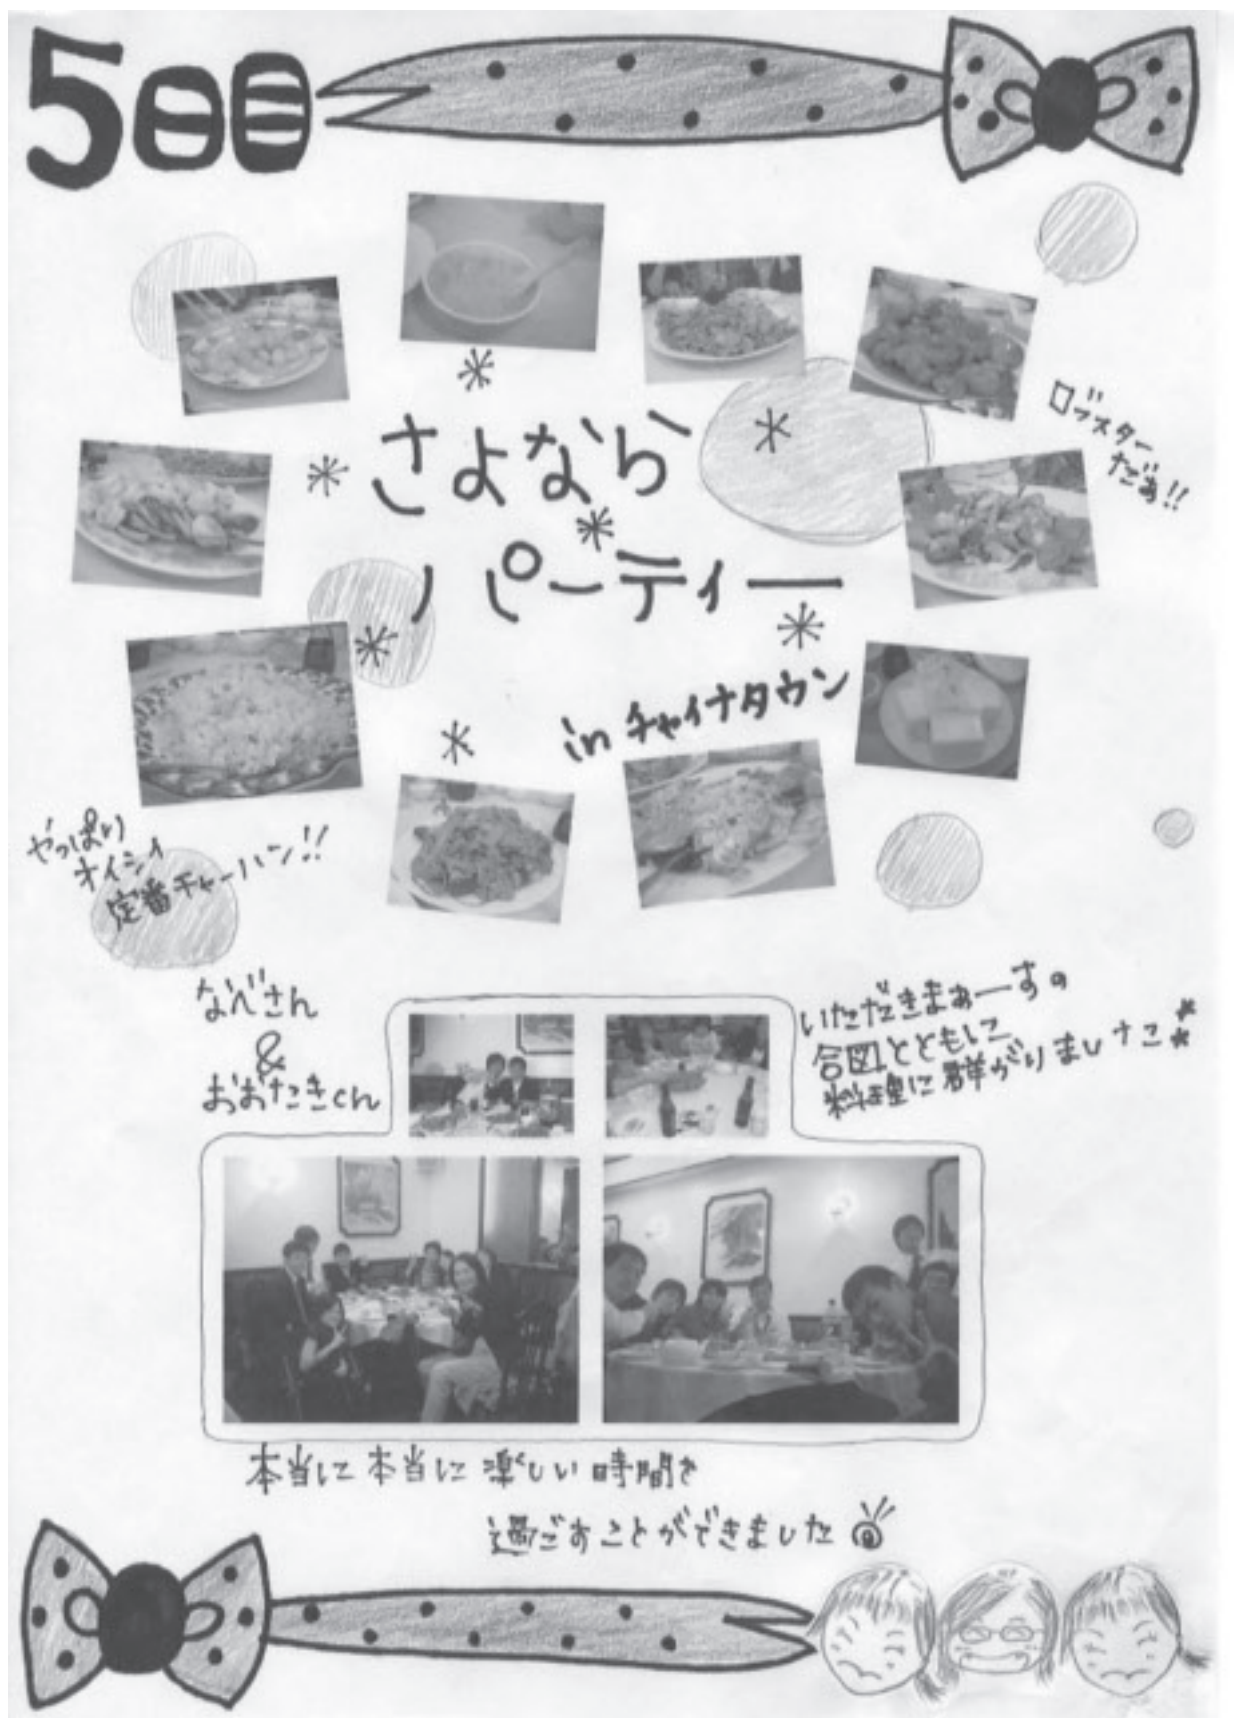 5日目
さよなら
パーティー
in チャイナタウン
ロブスター
だぁ!!
やっぱり
オイシイ
定番チャーハン!!
なべさん
&
おおたきくん
いただきまぁーすの
合図とともに
料理に群がりました
本当に本当に楽しい時間を
過ごすことができました